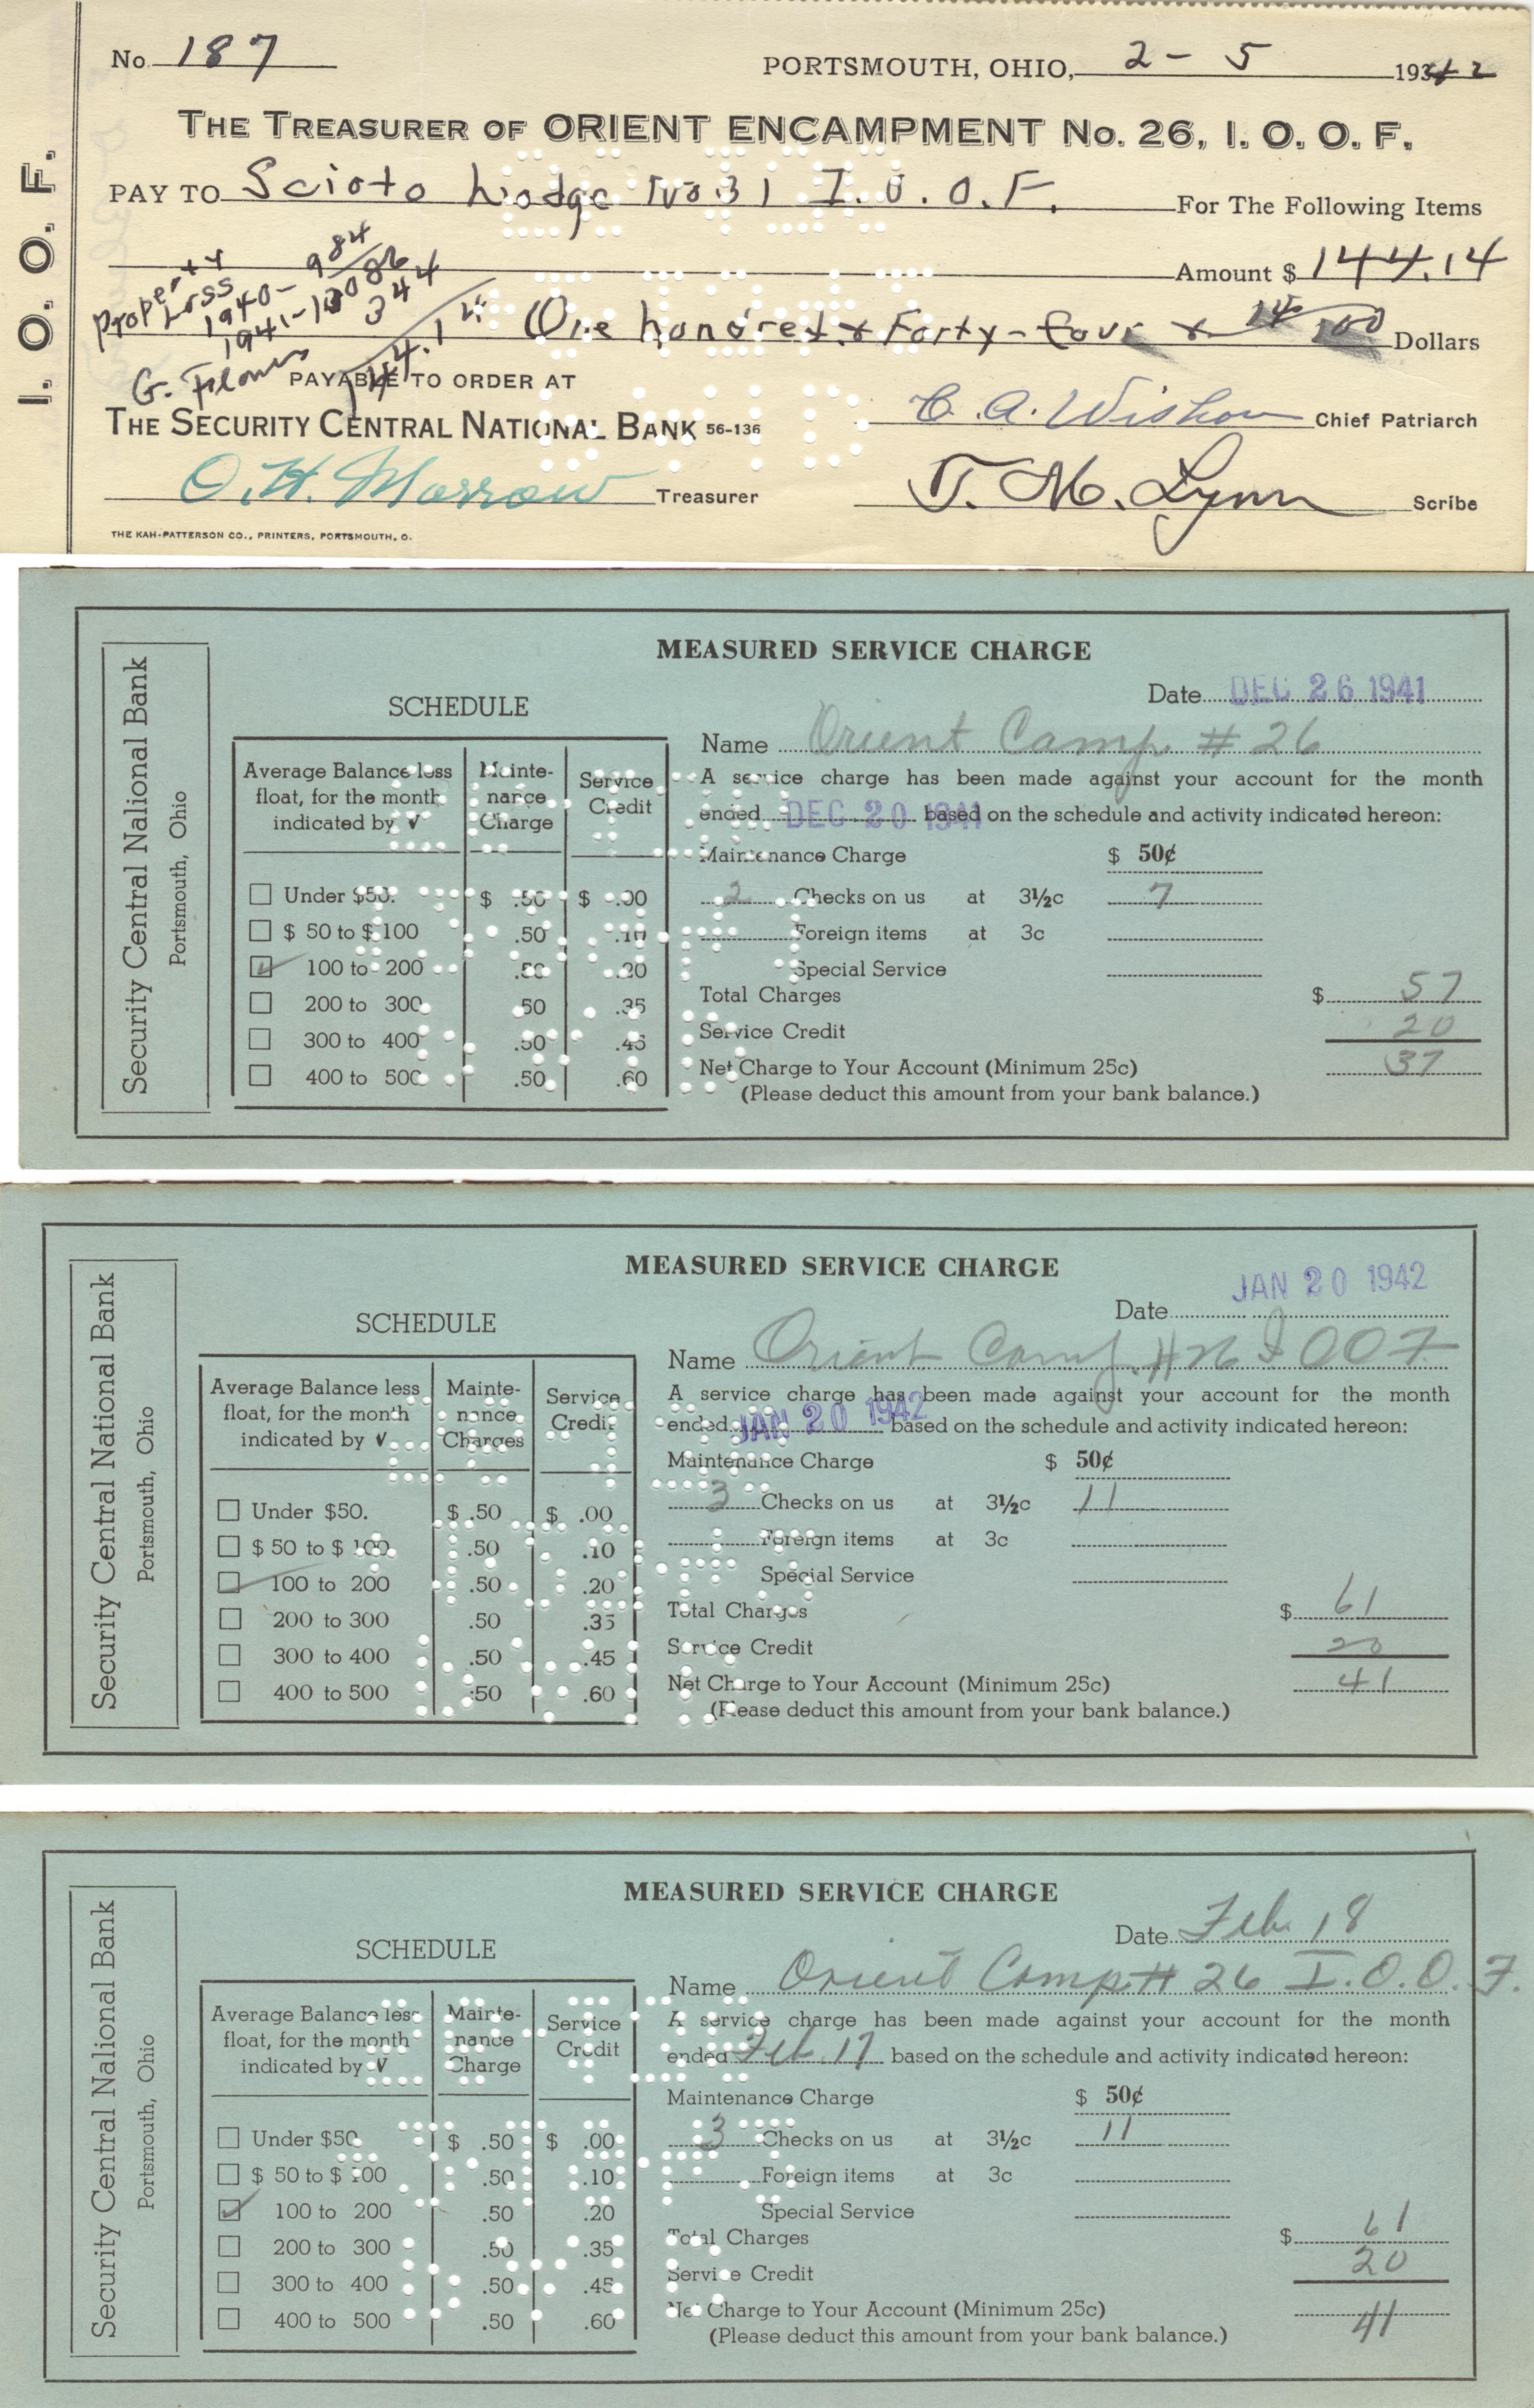 I. O. O. F.
No. 187
PORTSMOUTH, OHIO, 2 - 5 1942
THE TREASURER OF ORIENT ENCAMPMENT No. 26, I. O. O. F.
PAY TO Scioto Lodge No 31 I. O. O. F. For The Following Items
Amount $ 144.14
Property Loss
1940 - 984
1941 -
344
144.14
One hundred & Forty-four & 14/100 Dollars
G.
PAYABLE TO ORDER AT
THE SECURITY CENTRAL NATIONAL BANK 56-136
C. A. Chief Patriarch
O. H. Morrow Treasurer
T. M. Lynn Scribe
THE KAH-PATTERSON CO., PRINTERS, PORTSMOUTH, O.
Security Central National Bank
Portsmouth, Ohio
MEASURED SERVICE CHARGE
Date DEC 26 1941
SCHEDULE
Name Orient Camp # 26
Average Balance less float, for the month indicated by √
Mainte-nance Charge
Service Credit
Under $50. $ .50 $ .00
$ 50 to $ 100 .50 .10
100 to 200 .50 .20
200 to 300 .50 .35
300 to 400 .50 .45
400 to 500 .50 .60
A service charge has been made against your account for the month
ended DEC 20 1941 based on the schedule and activity indicated hereon:
Maintenance Charge $ 50¢
2 Checks on us at 3½c 7
Foreign items at 3c
Special Service
Total Charges $ 57
Service Credit 20
Net Charge to Your Account (Minimum 25c) 37
(Please deduct this amount from your bank balance.)
Security Central National Bank
Portsmouth, Ohio
MEASURED SERVICE CHARGE
Date JAN 20 1942
SCHEDULE
Name Orient Camp. # 26 I O O F
Average Balance less float, for the month indicated by √
Mainte-nance Charges
Service Credit
Under $50. $ .50 $ .00
$ 50 to $ 100 .50 .10
100 to 200 .50 .20
200 to 300 .50 .35
300 to 400 .50 .45
400 to 500 .50 .60
A service charge has been made against your account for the month
ended JAN 20 1942 based on the schedule and activity indicated hereon:
Maintenance Charge $ 50¢
3 Checks on us at 3½c 11
Foreign items at 3c
Special Service
Total Charges $ 61
Service Credit 20
Net Charge to Your Account (Minimum 25c) 41
(Please deduct this amount from your bank balance.)
Security Central National Bank
Portsmouth, Ohio
MEASURED SERVICE CHARGE
Date Feb. 18
SCHEDULE
Name Orient Camp # 26 I.O.O.F.
Average Balance less float, for the month indicated by √
Mainte-nance Charge
Service Credit
Under $50 $ .50 $ .00
$ 50 to $ 100 .50 .10
100 to 200 .50 .20
200 to 300 .50 .35
300 to 400 .50 .45
400 to 500 .50 .60
A service charge has been made against your account for the month
ended Feb. 17 based on the schedule and activity indicated hereon:
Maintenance Charge $ 50¢
3 Checks on us at 3½c 11
Foreign items at 3c
Special Service
Total Charges $ 61
Service Credit 20
Net Charge to Your Account (Minimum 25c) 41
(Please deduct this amount from your bank balance.)